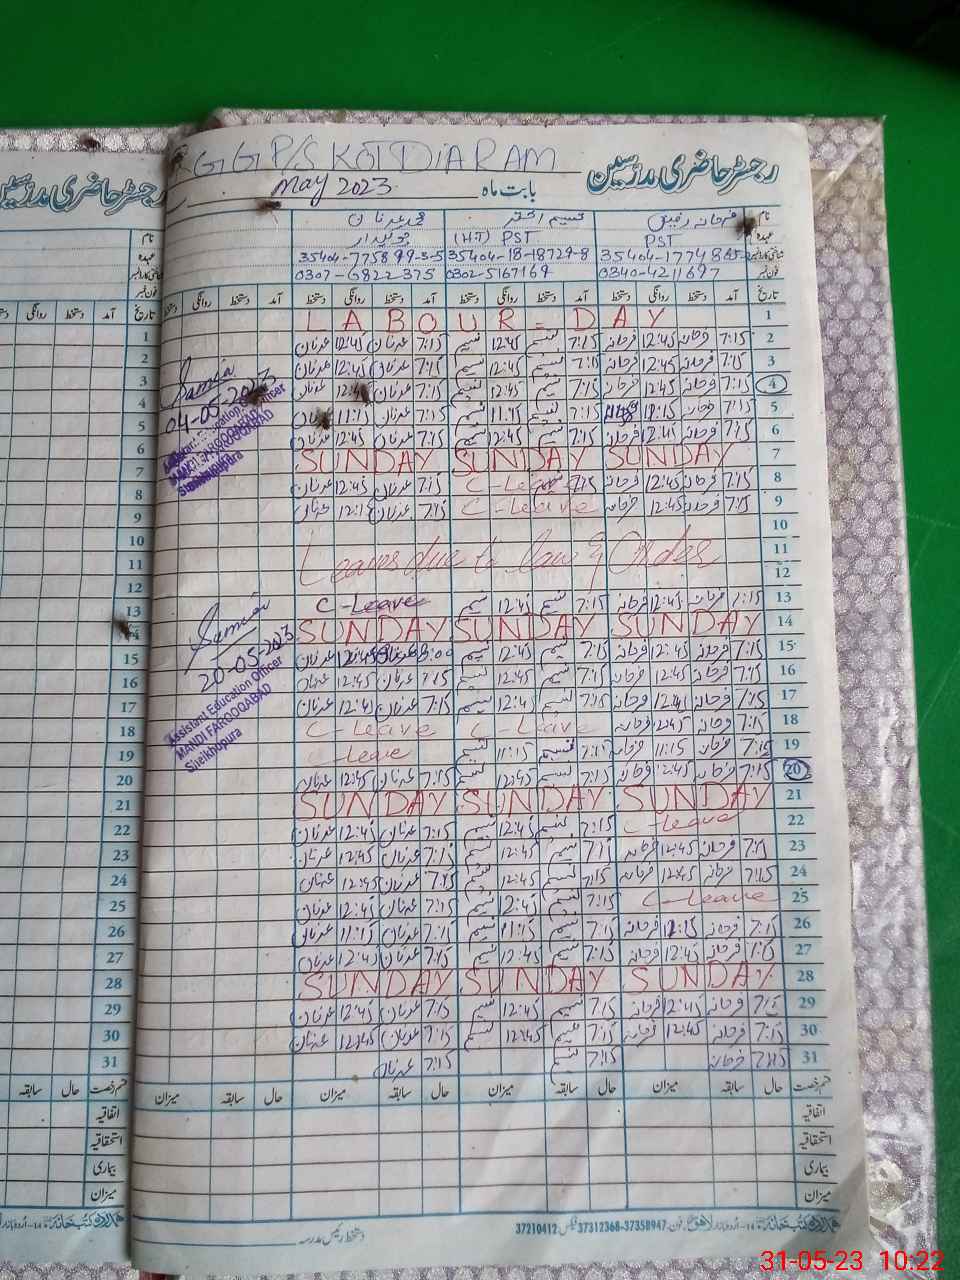 GGP/S KOT DiARAM
رجسٹر حاضری مدرسین
بابت ماہ May 2023
نام فرحانہ رفیق نسیم اختر محمد عدنان
عہدہ PST (H.T) PST چوکیدار
35404-18-18729-8
فون نمبر 0340-4211697 0302-5167169 0307-6822375
تاریخ آمد دستخط روانگی دستخط آمد دستخط روانگی دستخط آمد دستخط روانگی دستخط آمد دستخط روانگی دستخط
1 LABOUR - DAY
2 7:15 فرحانہ 12:45 فرحانہ 7:15 نسیم 12:45 نسیم 7:15 عدنان 12:45 عدنان
3 7:15 فرحانہ 12:45 فرحانہ 7:15 نسیم 12:45 نسیم 7:15 عدنان 12:45 عدنان
4 7:15 فرحانہ 12:45 فرحانہ 7:15 نسیم 12:45 نسیم 7:15 عدنان 12:45 عدنان
5 7:15 فرحانہ 11:15 7:15 نسیم 11:15 نسیم 7:15 عدنان 11:15 عدنان
6 7:15 فرحانہ 12:45 فرحانہ 7:15 نسیم 12:45 نسیم 7:15 عدنان 12:45 عدنان
7 SUNDAY SUNDAY SUNDAY
8 7:15 فرحانہ 12:45 فرحانہ C-Leave 7:15 عدنان 12:45 عدنان
9 7:15 فرحانہ 12:45 فرحانہ C-Leave 7:15 عدنان 12:15 عدنان
10
11 Leaves due to law & Order
12
13 7:15 فرحانہ 12:45 فرحانہ 7:15 نسیم 12:45 نسیم C-Leave
14 SUNDAY SUNDAY SUNDAY
15 7:15 فرحانہ 12:45 فرحانہ 7:15 نسیم 12:45 نسیم 8:00 عدنان 12:45 عدنان
16 7:15 فرحانہ 12:45 فرحانہ 7:15 نسیم 12:45 نسیم 7:15 عدنان 12:45 عدنان
17 7:15 فرحانہ 12:45 فرحانہ 7:15 نسیم 12:45 نسیم 7:15 عدنان 12:45 عدنان
18 7:15 فرحانہ 12:45 فرحانہ C-Leave C-Leave
19 7:15 فرحانہ 11:15 فرحانہ 7:15 نسیم 11:15 نسیم C-Leave
20 7:15 فرحانہ 12:45 فرحانہ 7:15 نسیم 12:45 نسیم 7:15 عدنان 12:45 عدنان
21 SUNDAY SUNDAY SUNDAY
22 C-Leave 7:15 نسیم 12:45 نسیم 7:15 عدنان 12:45 عدنان
23 7:15 فرحانہ 12:45 فرحانہ 7:15 نسیم 12:45 نسیم 7:15 عدنان 12:45 عدنان
24 7:15 فرحانہ 12:45 فرحانہ 7:15 نسیم 12:45 نسیم 7:15 عدنان 12:45 عدنان
25 C-Leave 7:15 نسیم 12:45 نسیم 7:15 عدنان 12:45 عدنان
26 7:15 فرحانہ 12:15 فرحانہ 7:15 نسیم 11:15 نسیم 7:15 عدنان 11:15 عدنان
27 7:15 فرحانہ 12:45 فرحانہ 7:15 نسیم 12:45 نسیم 7:15 عدنان 12:45 عدنان
28 SUNDAY SUNDAY SUNDAY
29 7:15 فرحانہ 12:45 فرحانہ 7:15 نسیم 12:45 نسیم 7:15 عدنان 12:45 عدنان
30 7:15 فرحانہ 12:45 فرحانہ 7:15 نسیم 12:45 نسیم 7:15 عدنان 12:45 عدنان
31 7:15 فرحانہ 7:15 نسیم 7:15 عدنان
قسم رخصت حال سابقہ میزان حال سابقہ میزان حال سابقہ میزان حال سابقہ میزان
اتفاقیہ
استحقاقیہ
بیماری
میزان
Samia
04-05-2023
Assistant Education Officer
MANDI FAROOQABAD
Sheikhupura
Samia
20-05-2023
Assistant Education Officer
MANDI FAROOQABAD
Sheikhupura
دستخط رئیس مدرسہ
اردو بازار لاہور فون: 37312368-37358947 فیکس: 37210412
رجسٹر حاضری مدرسین
نام
عہدہ
فون نمبر
تاریخ آمد دستخط روانگی دستخط
1
2
3
4
5
6
7
8
9
10
11
12
13
14
15
16
17
18
19
20
21
22
23
24
25
26
27
28
29
30
31
قسم رخصت حال سابقہ
اتفاقیہ
استحقاقیہ
بیماری
میزان
31-05-23 10:22